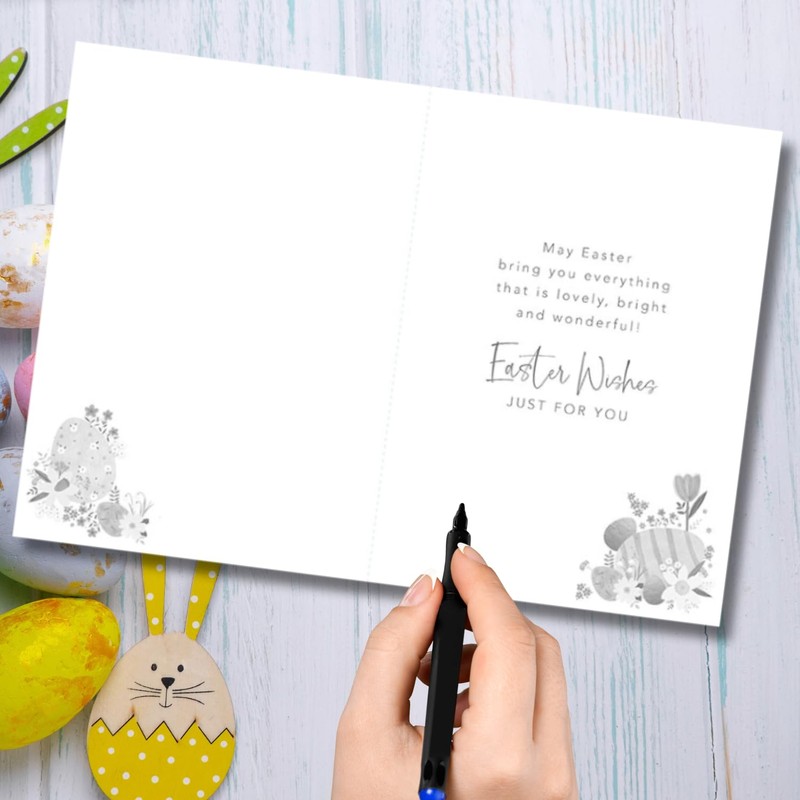 May Easter
bring you everything
that is lovely, bright
and wonderful!
Easter Wishes
JUST FOR YOU